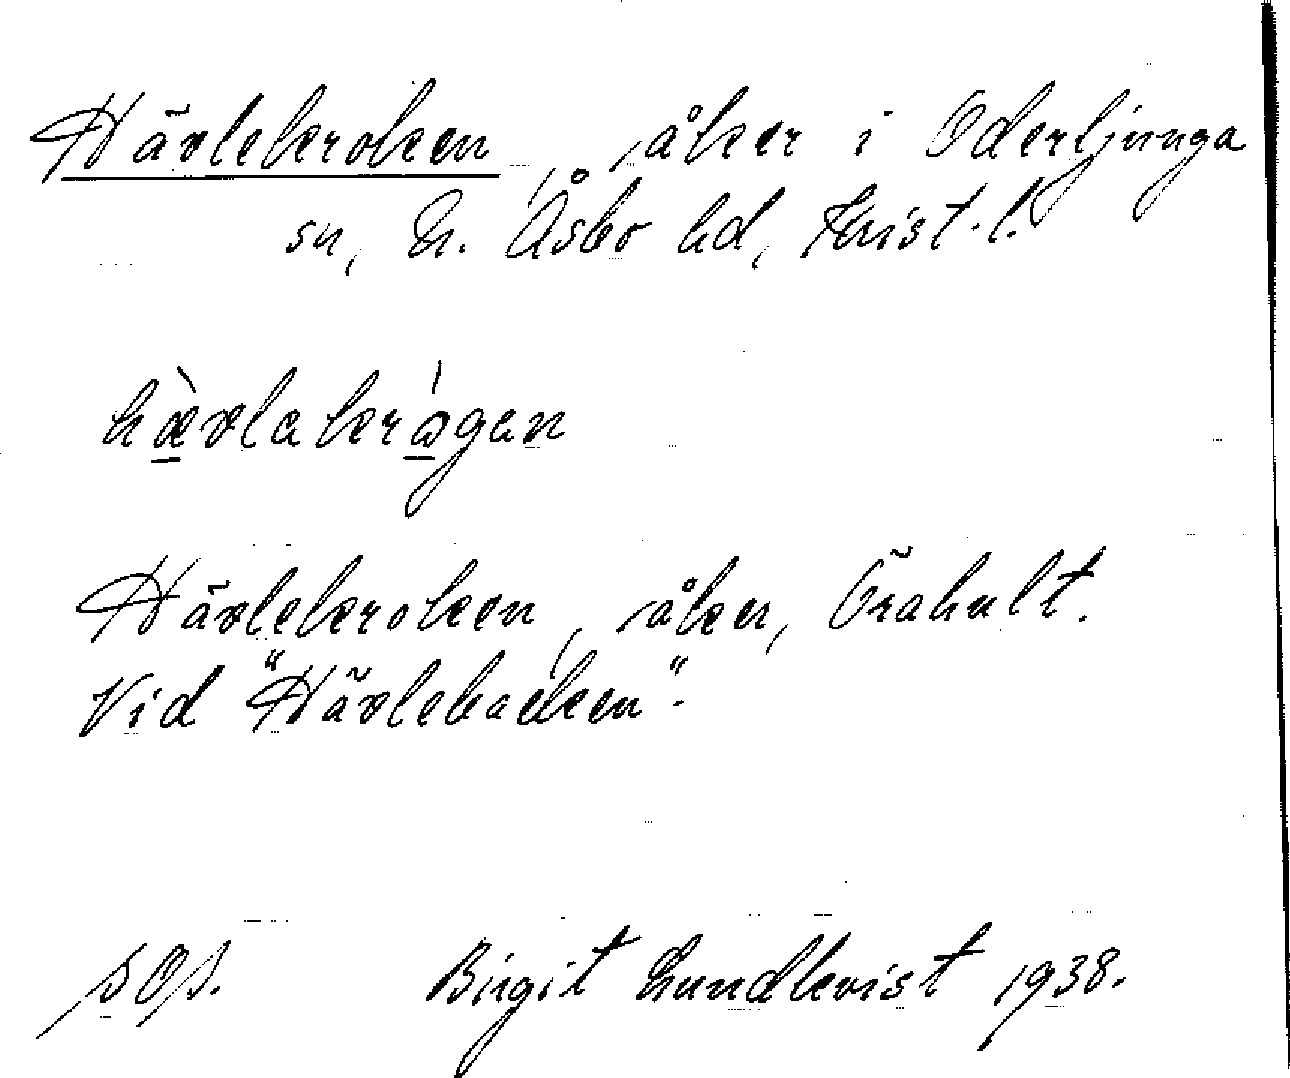 Hävlekroken, åker i Oderljunga
sn, N. Åsbo hd, Krist. l.
hàvlakrágan
Hävlekroken, åker, Örahult.
Vid "Hävlebacken".
Birgit Lundkvist 1938.